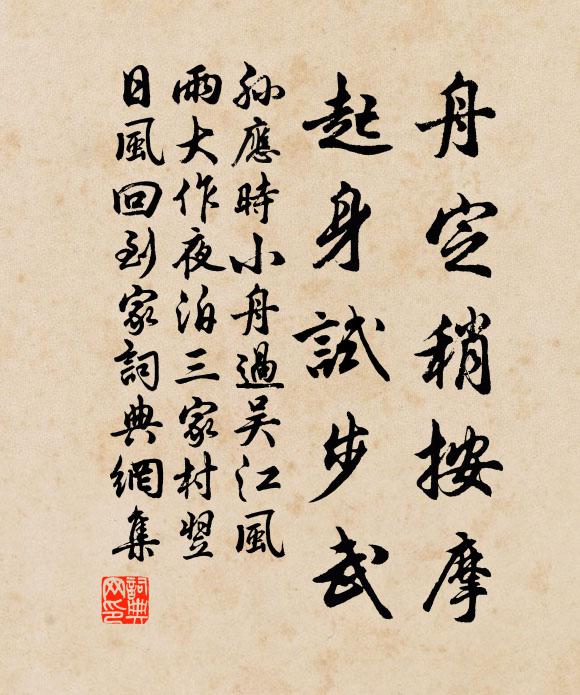 舟定稍按摩
起身試步武
孫應時小舟過吳江風
雨大作夜泊三家村翌
日風回到家詞典網集
詞典網印